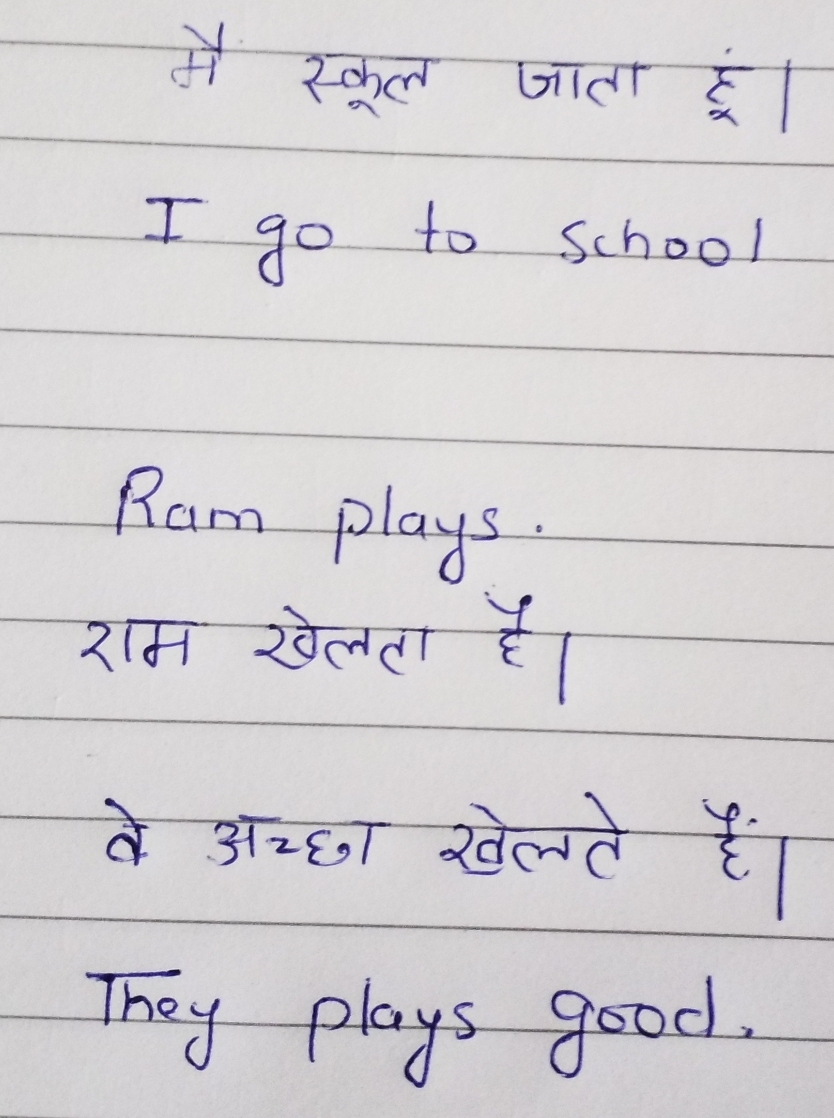 मै स्कूल जाता हूं।
I go to school
Ram plays.
राम खेलता है।
वे अच्छा खेलते हैं।
They plays good.